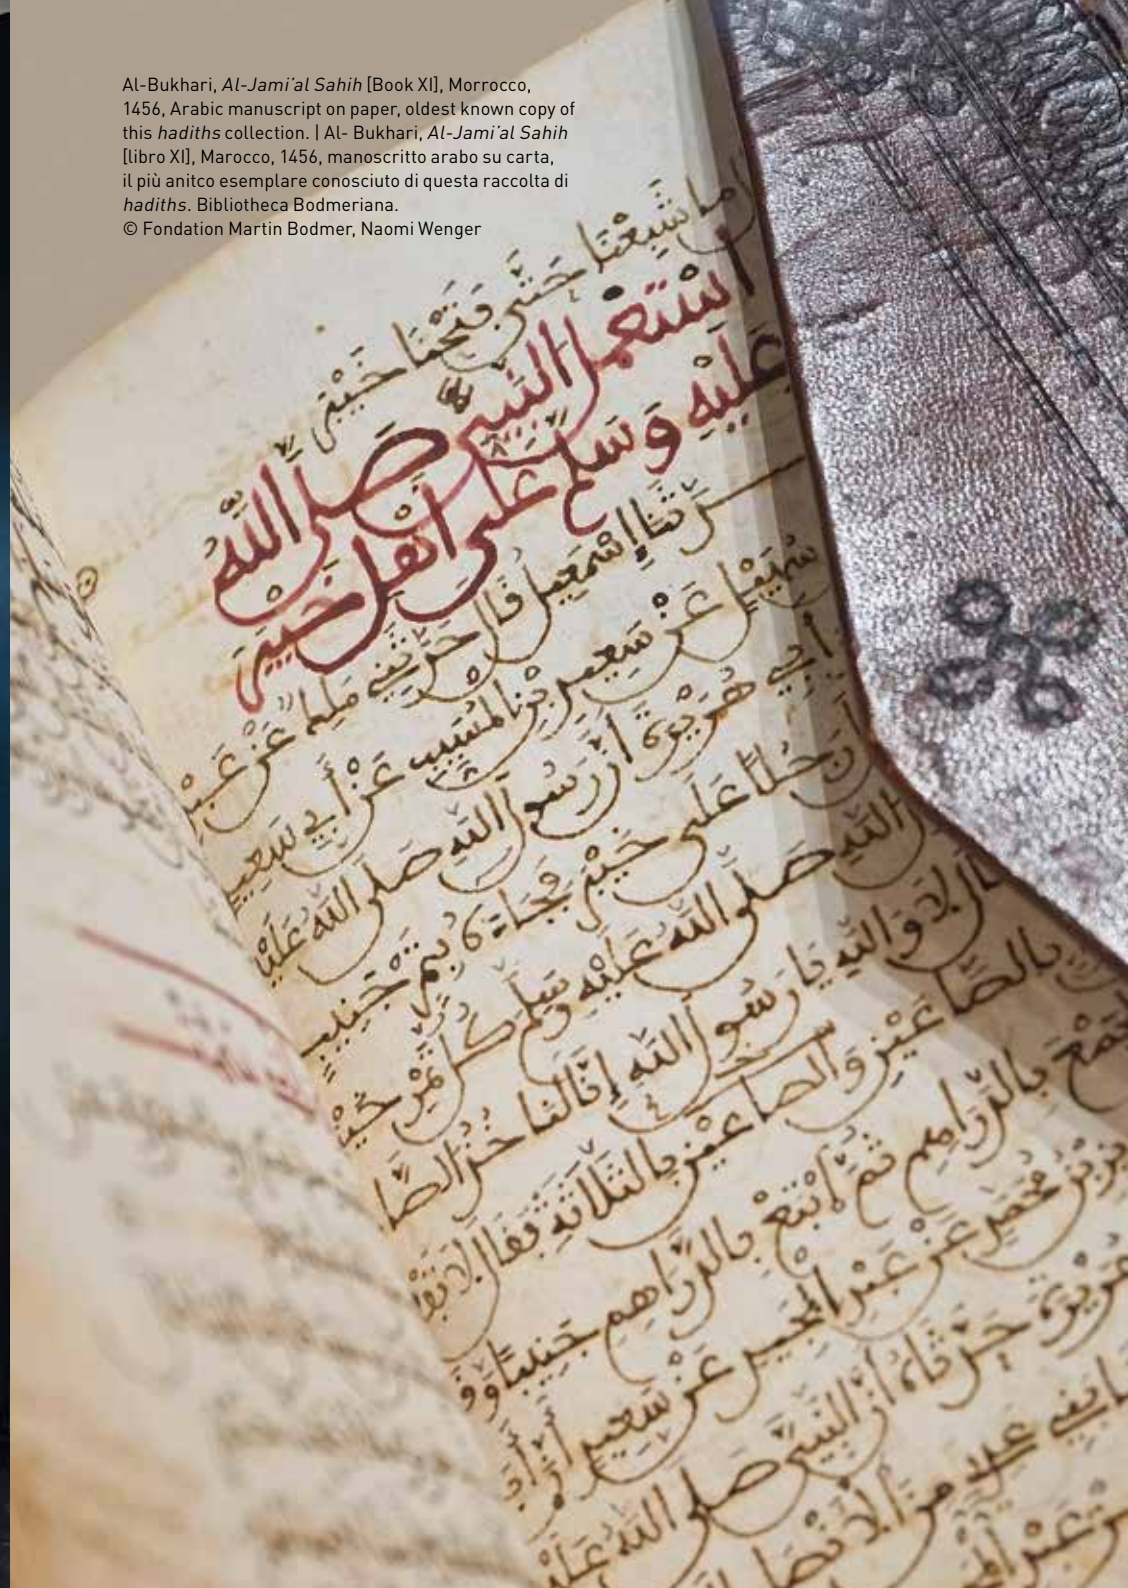 Al-Bukhari, Al-Jami'al Sahih [Book XI], Morrocco,
1456, Arabic manuscript on paper, oldest known copy of
this hadiths collection. | Al- Bukhari, Al-Jami'al Sahih
[libro XI], Marocco, 1456, manoscritto arabo su carta,
il più anitco esemplare conosciuto di questa raccolta di
hadiths. Bibliotheca Bodmeriana.
© Fondation Martin Bodmer, Naomi Wenger
ما شَبِعْنَا حَتَّى فَتَحْنَا خَيْبَر
اسْتَعْمل النَّبِي صَلى اللَّه
عَلَيْهِ وَسَلم عَلَى اهْل خَيْبر
حدثنا إسْمَعِيل قَال حَدثَنِي مَلِك عَنْ عَبْد
سُهَيْل عَنْ سَعِيد بْن الْمُسَيِّب عَنْ أَبِي سَعِيد
أبِي هُرَيْرَة أن رَسُول اللَّه صَلى اللَّهُ عَلَيْه
رَجُلًا عَلَى خَيْبَر فَجَاءَهُ بِتَمْر جَنِيب
اللَّه صَلى اللَّه عَلَيْهِ وَسَلَّم كُل تَمْر خَيْ
قَال لا وَاللَّه يَا رَسُول اللَّه إِنَّا لَنَاخُذُ الصَّا
بِالصَّاعَيْن وَالصاعَيْن بِالثَّلَاثَةِ فَقَال لَا تَفْ
الجَمْعَ بِالدَّرَاهِم ثُمَّ ابْتَعْ بِالدَّرَاهِم جَنِيبًا وَ
بْن مُحَمَّد عَنْ عَبْد الْمَجِيد عَنْ سَعِيد أن أَبَ
هُرَيْرَة حَدثَاهُ أن النَّبِي صَلى اللَّهُ عَلَيْ
بَنِي عَدِي من الانْصَا
عَنْ عَبْد الْم